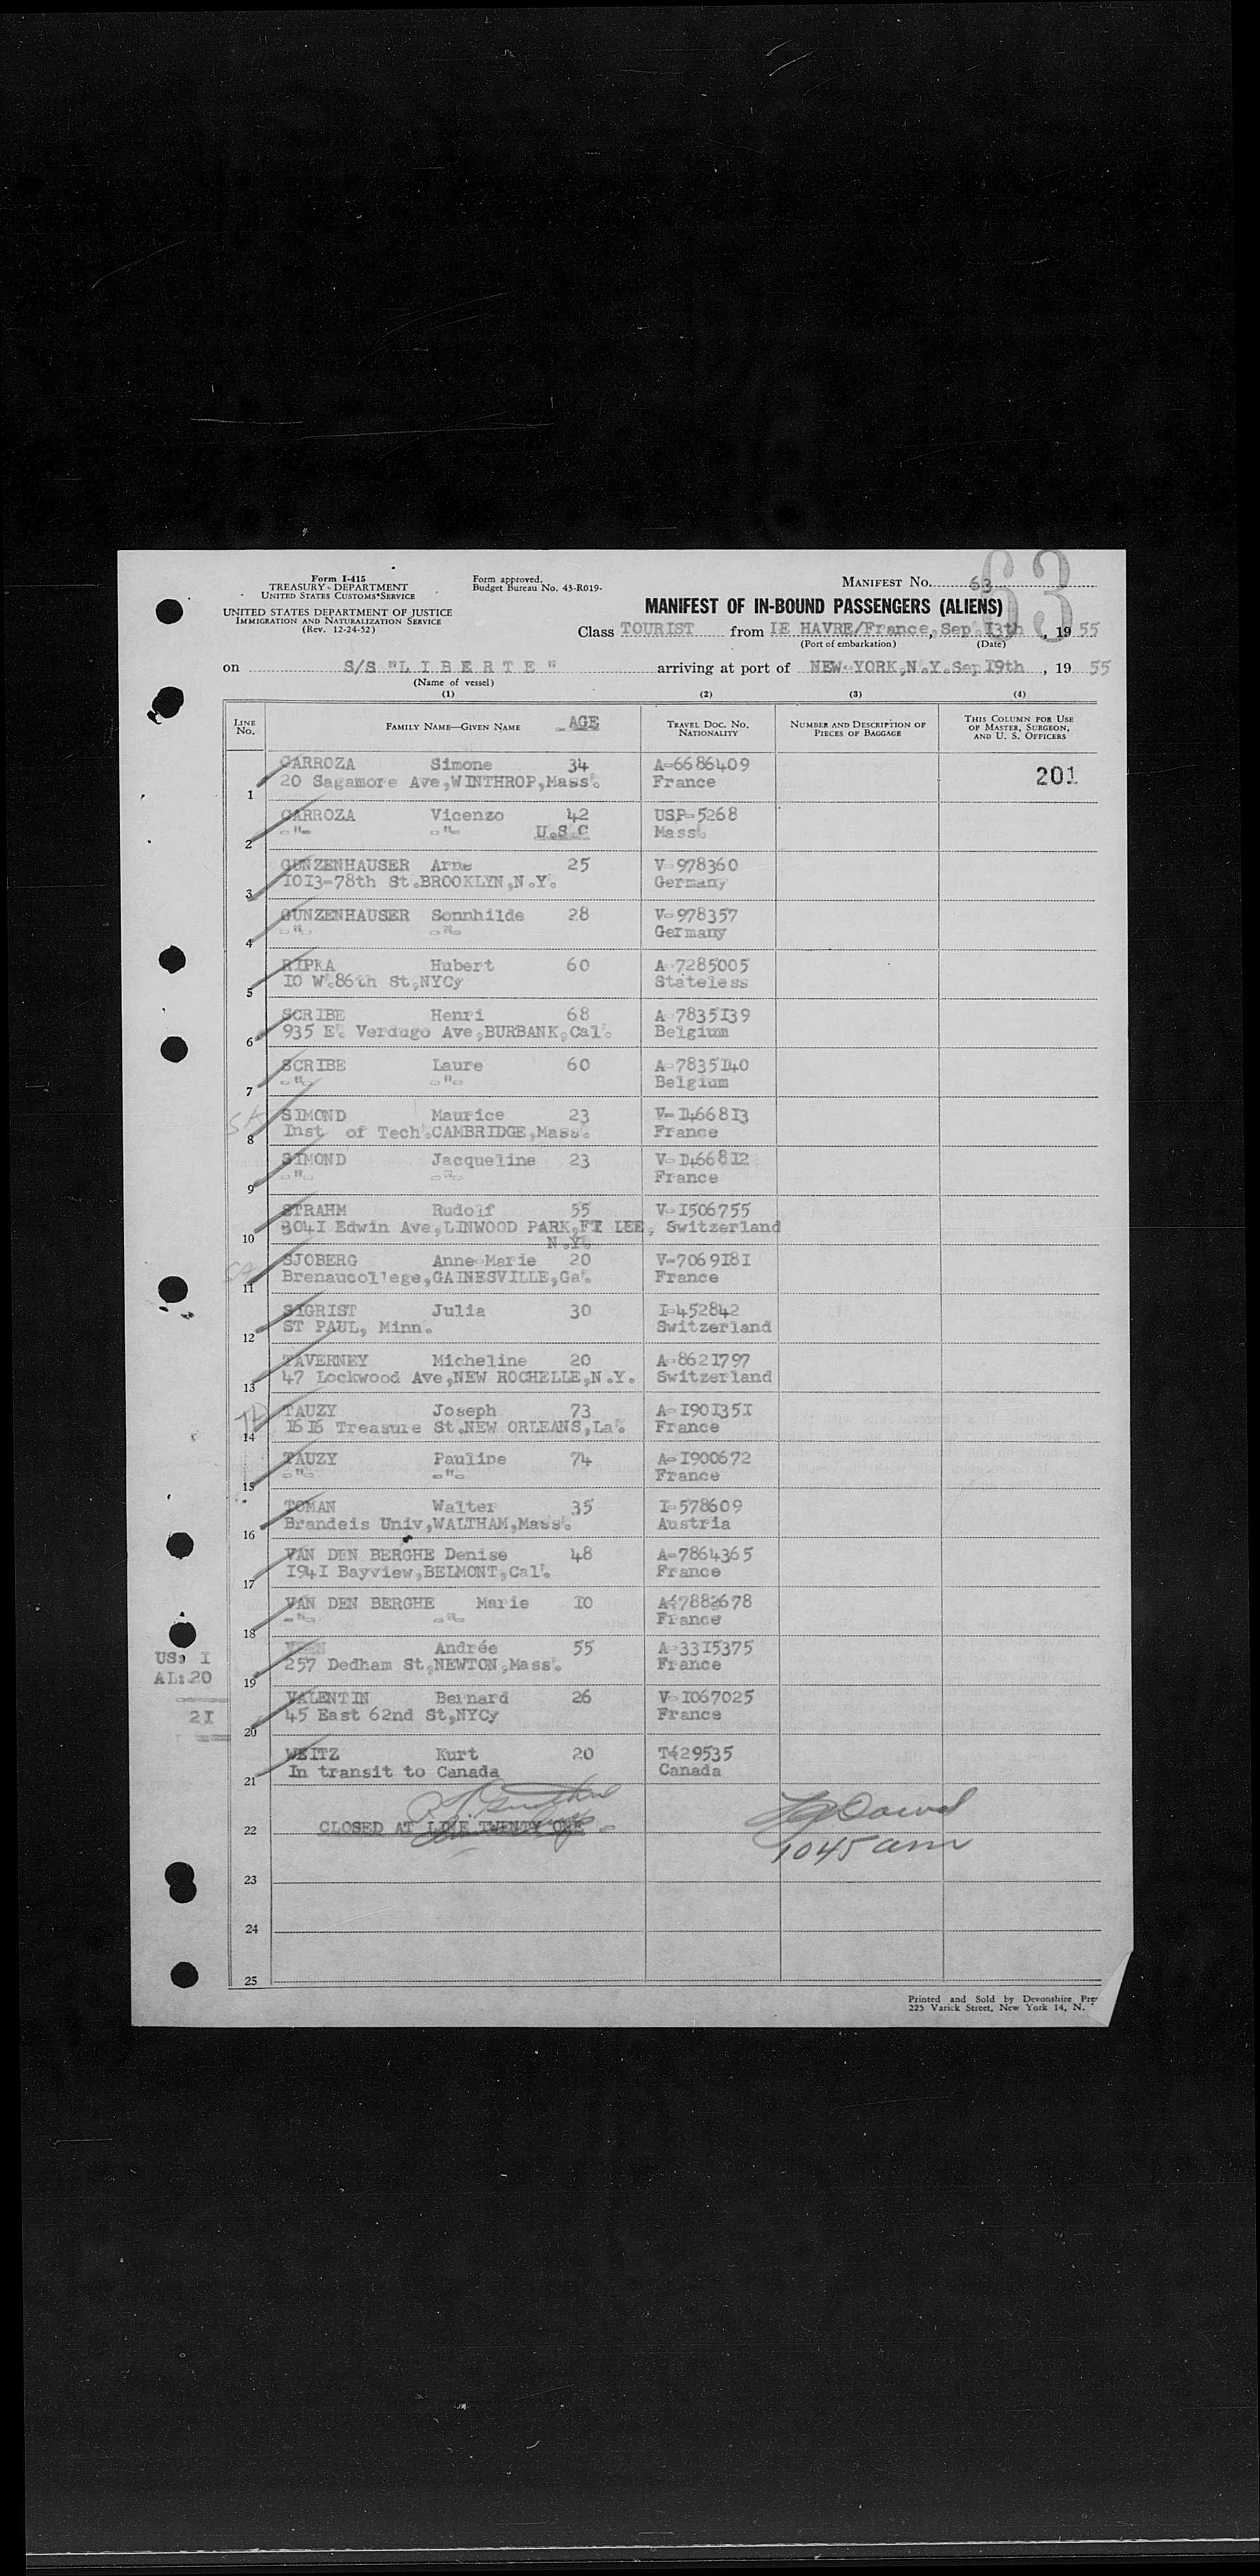 Form I-415
TREASURY DEPARTMENT
UNITED STATES CUSTOMS SERVICE
UNITED STATES DEPARTMENT OF JUSTICE
IMMIGRATION AND NATURALIZATION SERVICE
(Rev. 12-24-52)
Form approved.
Budget Bureau No. 43-R019-
MANIFEST NO. 63
63
MANIFEST OF IN-BOUND PASSENGERS (ALIENS)
Class TOURIST from LE HAVRE/France, Sep. 13th, 1955
(Port of embarkation) (Date)
on S/S "L I B E R T E" arriving at port of NEW-YORK,N.Y.Sep 19th, 1955
(Name of vessel)
(1) (2) (3) (4)
LINE No. FAMILY NAME—GIVEN NAME AGE TRAVEL DOC. NO. NATIONALITY NUMBER AND DESCRIPTION OF PIECES OF BAGGAGE THIS COLUMN FOR USE OF MASTER, SURGEON, AND U. S. OFFICERS
CARROZA Simone 34 A-6686409 201
1 20 Sagamore Ave,WINTHROP,Mass. France
CARROZA Vicenzo 42 USP-5268
2 -"- -"- U.S.C Mass.
GUNZENHAUSER Arne 25 V-978360
3 1013-78th St.BROOKLYN,N.Y. Germany
GUNZENHAUSER Sonnhilde 28 V-978357
4 -"- -"- Germany
RIPKA Hubert 60 A-7285005
5 10 W.86th St,NYCy Stateless
SCRIBE Henri 68 A-7835139
6 935 E. Verdugo Ave,BURBANK,Cal. Belgium
SCRIBE Laure 60 A-7835140
7 -"- -"- Belgium
SIMOND Maurice 23 V-1466813
8 Inst of Tech.CAMBRIDGE,Mass. France
SIMOND Jacqueline 23 V-1466812
9 -"- -"- France
STRAHM Rudolf 55 V-1506755
10 3041 Edwin Ave,LINWOOD PARK,FT LEE, Switzerland
N.Y.
SJOBERG Anne-Marie 20 V-7069181
11 Brenaucollege,GAINESVILLE,Ga. France
SIGRIST Julia 30 I-452842
12 ST PAUL, Minn. Switzerland
TAVERNEY Micheline 20 A-8621797
13 47 Lockwood Ave,NEW ROCHELLE,N.Y. Switzerland
TAUZY Joseph 73 A-1901351
14 1616 Treasure St.NEW ORLEANS,La. France
TAUZY Pauline 74 A-1900672
15 -"- -"- France
TOMAN Walter 35 I-578609
16 Brandeis Univ,WALTHAM,Mass. Austria
VAN DEN BERGHE Denise 48 A-7864365
17 1941 Bayview,BELMONT,Cal. France
VAN DEN BERGHE Marie 10 A-7882678
18 -"- -"- France
Andrée 55 A-3315375
19 257 Dedham St,NEWTON,Mass. France
VALENTIN Bernard 26 V-1067025
20 45 East 62nd St,NYCy France
WEITZ Kurt 20 T-29535
21 In transit to Canada Canada
US: 1
AL: 20
21
22 CLOSED AT LINE TWENTY ONE
1045 am
23
24
25
Printed and Sold by Devonshire
225 Varick Street, New York 14, N.